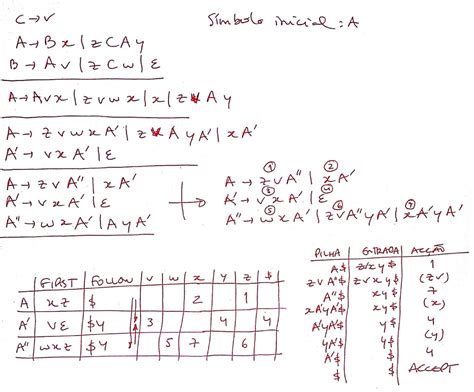 C → v
Símbolo inicial: A
A → B x | z C A y
B → A v | z C w | ε
A → A v x | z v w x | x | z v A y
A → z v w x A' | z v A y A' | x A'
A' → v x A' | ε
A → z v A'' | x A'
A' → v x A' | ε
A'' → w x A' | A y A'
① ②
A → z v A'' | x A'
③ ④
A' → v x A' | ε
⑤ ⑥ ⑦
A'' → w x A' | z v A'' y A' | x A' y A'
FIRST FOLLOW v w x y z $
A x z $ 2 1
A' v ε $ y 3 4 4
A'' w x z $ y 5 7 6
PILHA ENTRADA ACÇÃO
A $ z v x y $ 1
z v A'' $ z v x y $ (z v)
A'' $ x y $ 7
x A' y A' $ x y $ (x)
A' y A' $ y $ 4
y A' $ y $ (y)
A' $ $ 4
$ $ ACCEPT